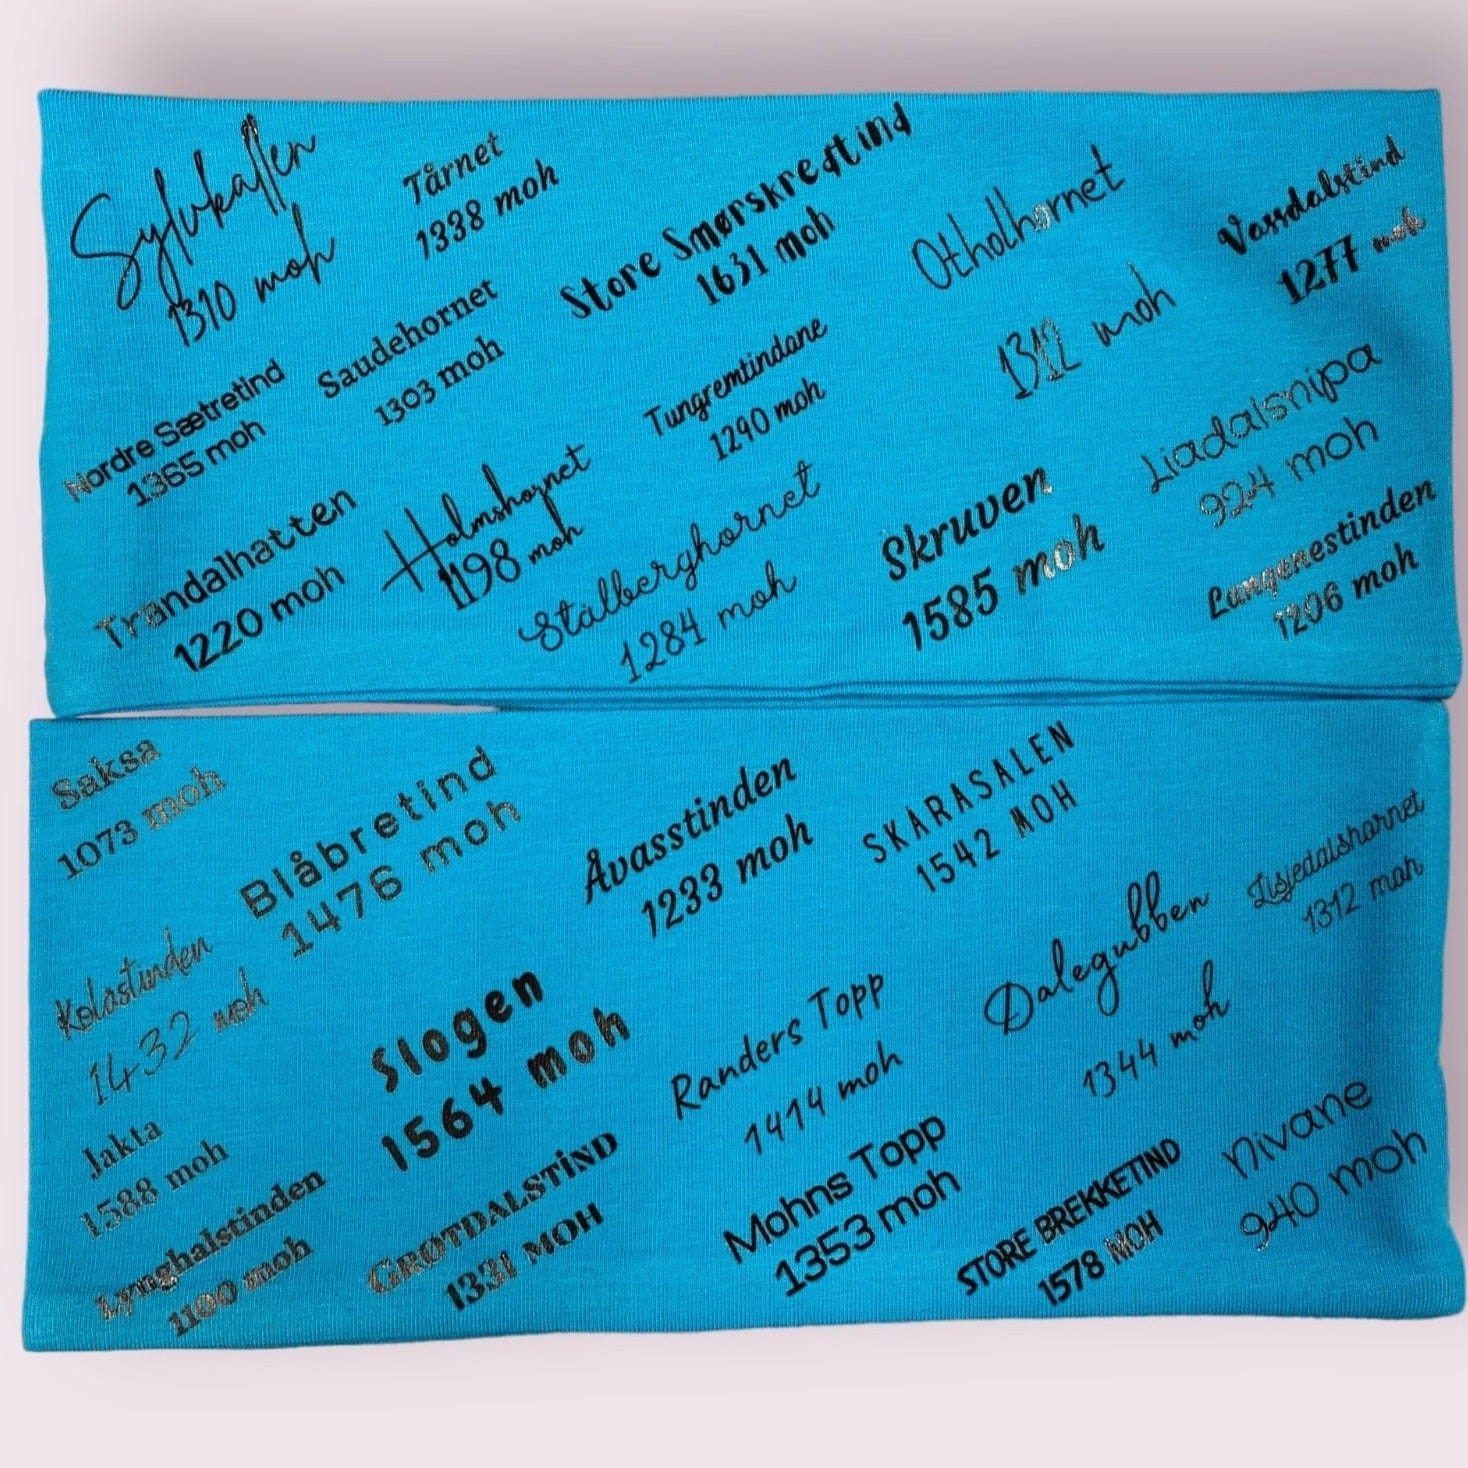 Sylvkallen
1310 moh
Tårnet
1338 moh
Store Smørskredtind
1631 moh
Otholhornet
1312 moh
Vassdalstind
1277 moh
Nordre Sætretind
1365 moh
Saudehornet
1303 moh
Tungremtindane
1290 moh
Liadalsnipa
924 moh
Trandalhatten
1220 moh
Holmshornet
1198 moh
Stålberghornet
1284 moh
Skruven
1585 moh
Langenestinden
1206 moh
Saksa
1073 moh
Blåbretind
1476 moh
Åvasstinden
1233 moh
SKÅRASALEN
1542 MOH
Lisjedalshornet
1312 moh
Kolåstinden
1432 moh
Slogen
1564 moh
Randers Topp
1414 moh
Dalegubben
1344 moh
Jakta
1588 moh
Lynghalstinden
1100 moh
GRØTDALSTIND
1331 MOH
Mohns Topp
1353 moh
STORE BREKKETIND
1578 MOH
Nivane
940 moh